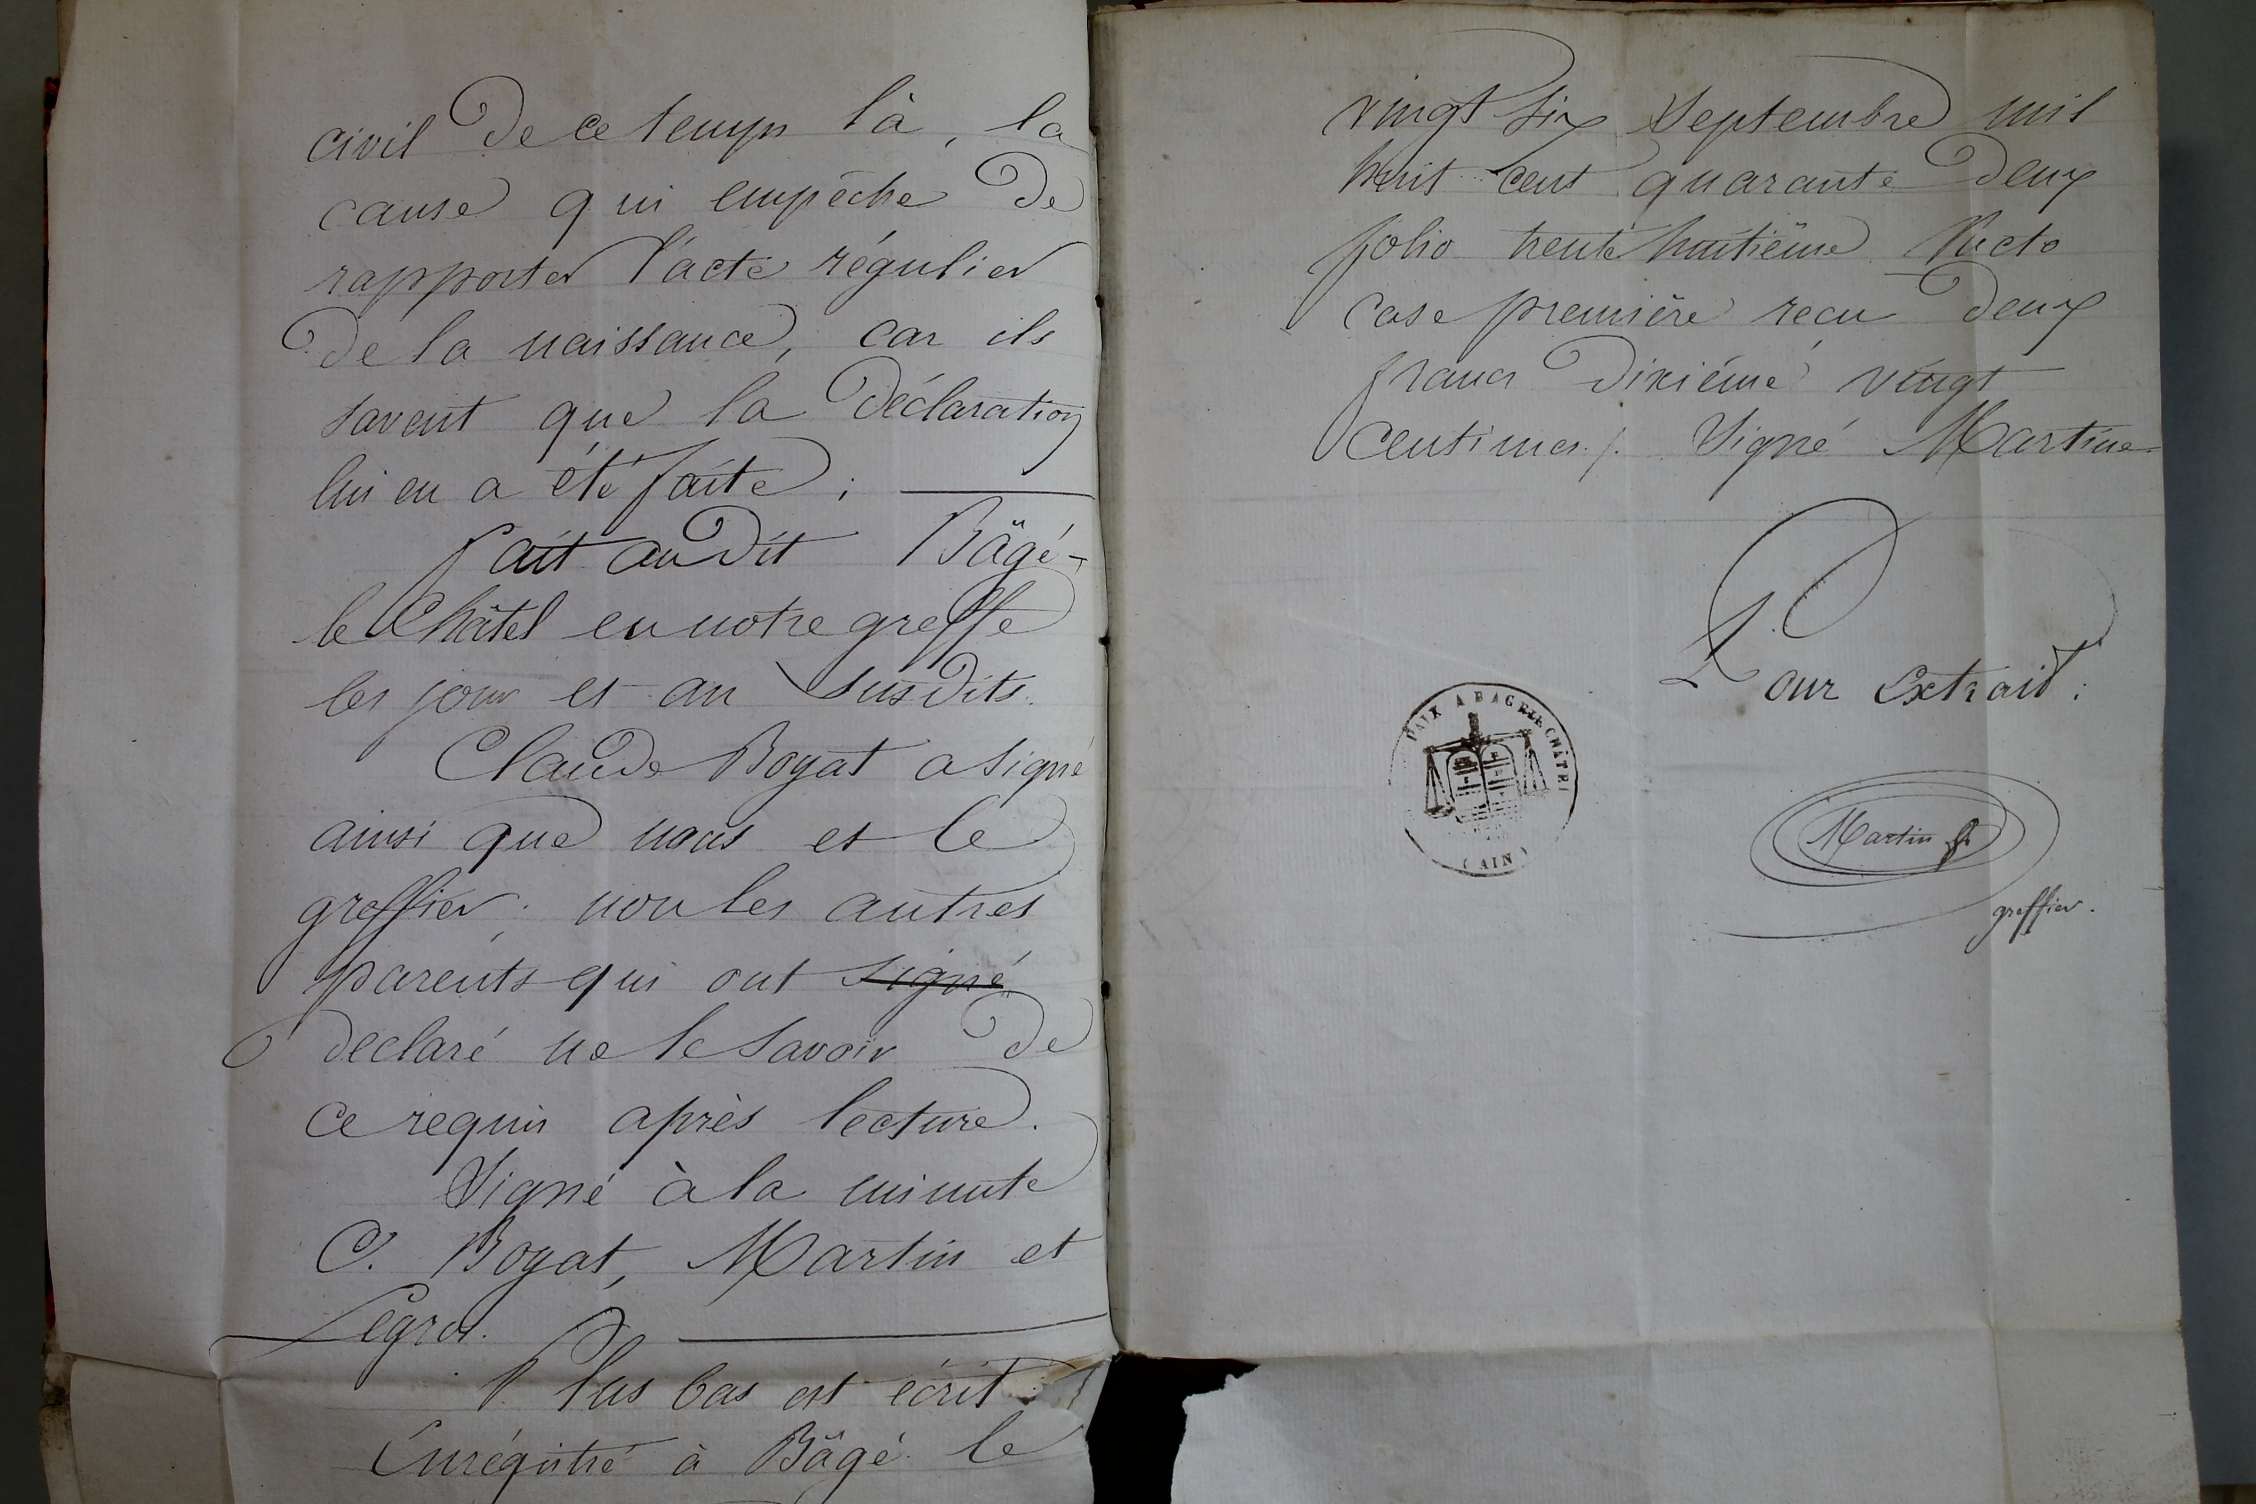 civil de ce temps là, la
cause qui empêche de
rapporter l'acte régulier
de la naissance, car ils
savent que la déclaration
lui en a été faite ;
fait au dit Bâgé-
le Châtel en notre greffe
les jour et an susdits.
Claude Boyat a signé
ainsi que nous et le
greffier, non les autres
parents qui ont signé
declaré ne le savoir de
ce requis après lecture.
Signé à la minute
C. Boyat, Martin et
Legros.
Plus bas est écrit
Enrégistré à Bâgé le
vingt six Septembre mil
huit cent quarante deux
folio trente huitième Recto
case première recu deux
francs dixième vingt
centimes /. Signé Martine
Pour Extrait :
PAIX A BAGE LE CHÂTEL
(AIN)
Martin
greffier.